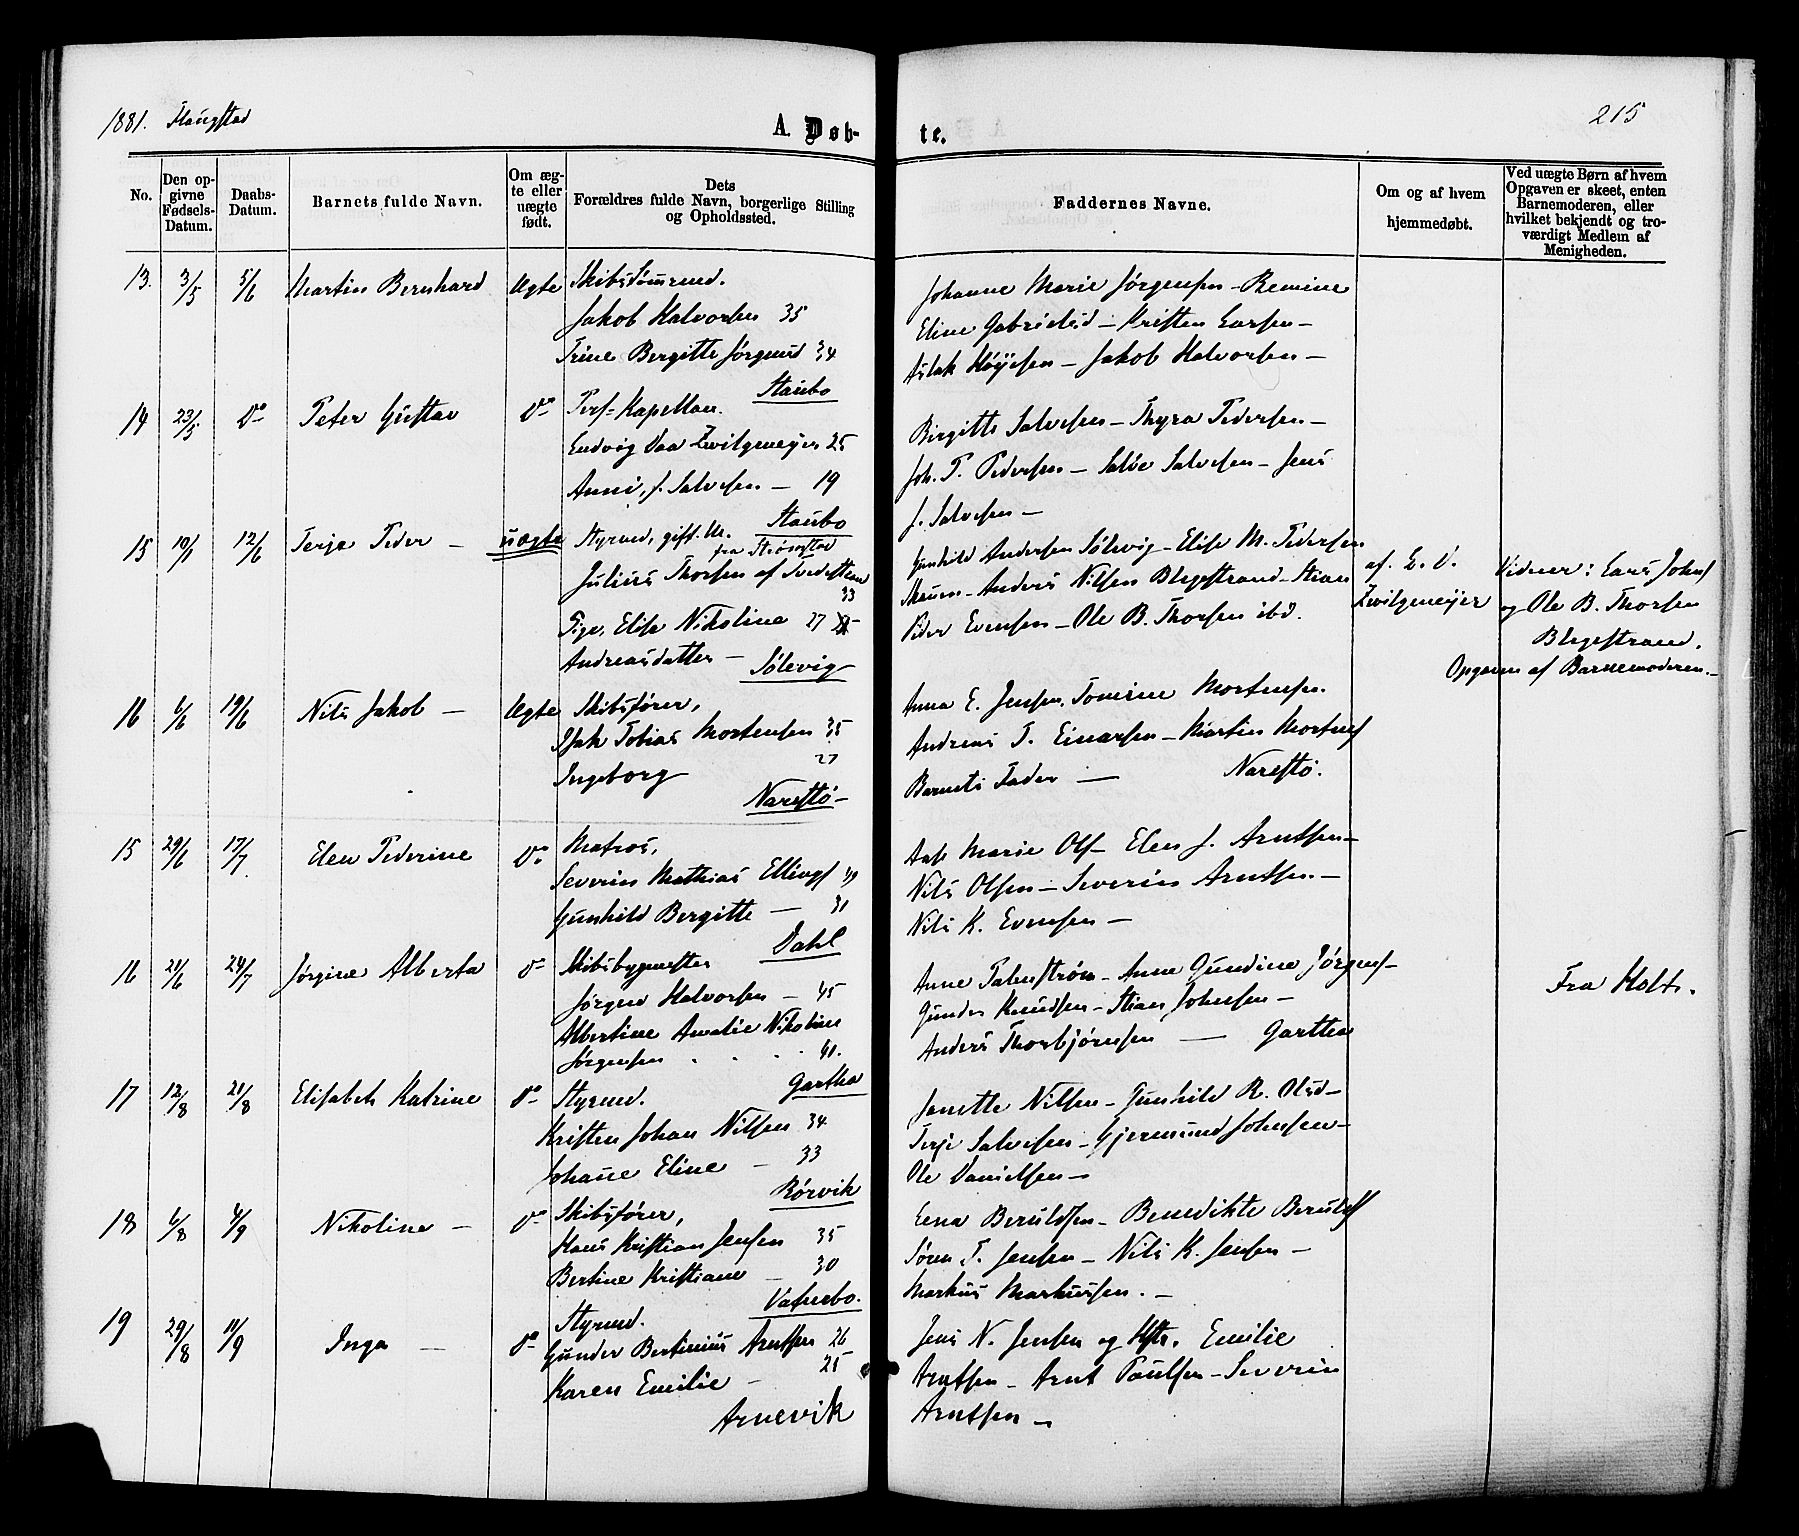 1881. Flangstad
A. Døb-
te.
215
No.
Den op-
givne
Fødsels-
Datum.
Daabs-
Datum.
Barnets fulde Navn.
Om æg-
te eller
uægte
født.
Dets
Forældres fulde Navn, borgerlige Stilling
og Opholdssted.
Faddernes Navne.
Om og af hvem
hjemmedøbt.
Ved uægte Børn af hvem
Opgaven er skeet, enten
Barnemoderen, eller
hvilket bekjendt og tro-
værdigt Medlem af
Menigheden.
13. 3/5 5/6 Martin Bernhard Ægte Skibstømrmd.
Jakob Halvorsen 35
Trine Bergitte Jørgensd 34
Staubo
Johanne Marie Jørgensen - Remine
Eline Gabrielsd - Kristen Larsen -
Aslak Høyesen - Jakob Halvorsen -
14 23/5 Do Peter Gustav Do Pers= Kapellan.
Ludvig Daa Zwilgmeyer 25
Anni, f. Salvesen - 19
Staubo
Birgitte Salvesen - Thyra Pedersen -
Joh. P. Pedersen - Salve Salvesen - Jens
J. Salvesen -
15 10/1 12/6 Terje Peder - uægte Styrmd, gift. M.
fra Strømstad
Julius Thorsen af Tvedestrand
33
Pige, Elise Nikoline 27
Andreasdatter - Sølevig
Gunhild Andersen Sølevig - Elise M. Pedersen
Skuen - Anders Nilsen Blegestrand - Stian
Peder Evensen - Ole B. Thorsen ibd.
af L. D.
Zwilgmeyer
Vidner: Lars Johns
og Ole B. Thorsen
Blegestrand.
Opgaven af Barnemoderen. -
16 6/6 19/6 Nils Jakob - Ægte Skibsfører,
Isak Tobias Mortensen 35
Ingeborg 27
Narestø -
Anna E. Jensen, Tomine Mortensen.
Andreas T. Einarsen - Martin Mortens
Barnets Fader - Narestø.
15 29/6 17/7 Elen Pederine Do Matros,
Severin Mathias Ellings 49
Gunhild Bergitte - 31
Dahl
Aase Marie Ols - Elen J. Arntsen -
Nils Olsen - Severin Arntsen -
Nils K. Evensen -
16 21/6 24/7 Jørgine Alberta Do Skibsbygmester
Jørgen Halvorsen - 45
Albertine Amalie Nikoline
Jørgensen . . . 41.
Gartha
Anne Palmstrøm - Anne Gundine Jørgens -
Gunder Knudsen - Stian Johnsen -
Anders Thorbjørnsen - Gartha
Fra Holt.
17 12/8 21/8 Elisabeth Katrine Do Styrmd.
Kristen Johan Nilsen 34
Johanne Eline - 33
Rørvik
Janette Nilsen - Gunhild R. Olsd -
Terje Salvesen - Gjermund Johnsen -
Ole Danielsen -
18 6/8 4/9 Nikoline - Do Skibsfører,
Hans Kristian Jensen 35
Bertine Kristiane - 30
Vatnebo.
Lena Beruldsen - Benedikte Berulds
Søren T. Jensen - Nils K. Jensen -
Markus Markussen. -
19 29/8 11/9 Inga - Do Styrmd.
Gunder Bertinius Arntsen 26
Karen Emilie - 25
Arnevik
Jens N. Jensen og Hstr. Emilie
Arntsen - Arnt Paulsen - Severin
Arntsen -